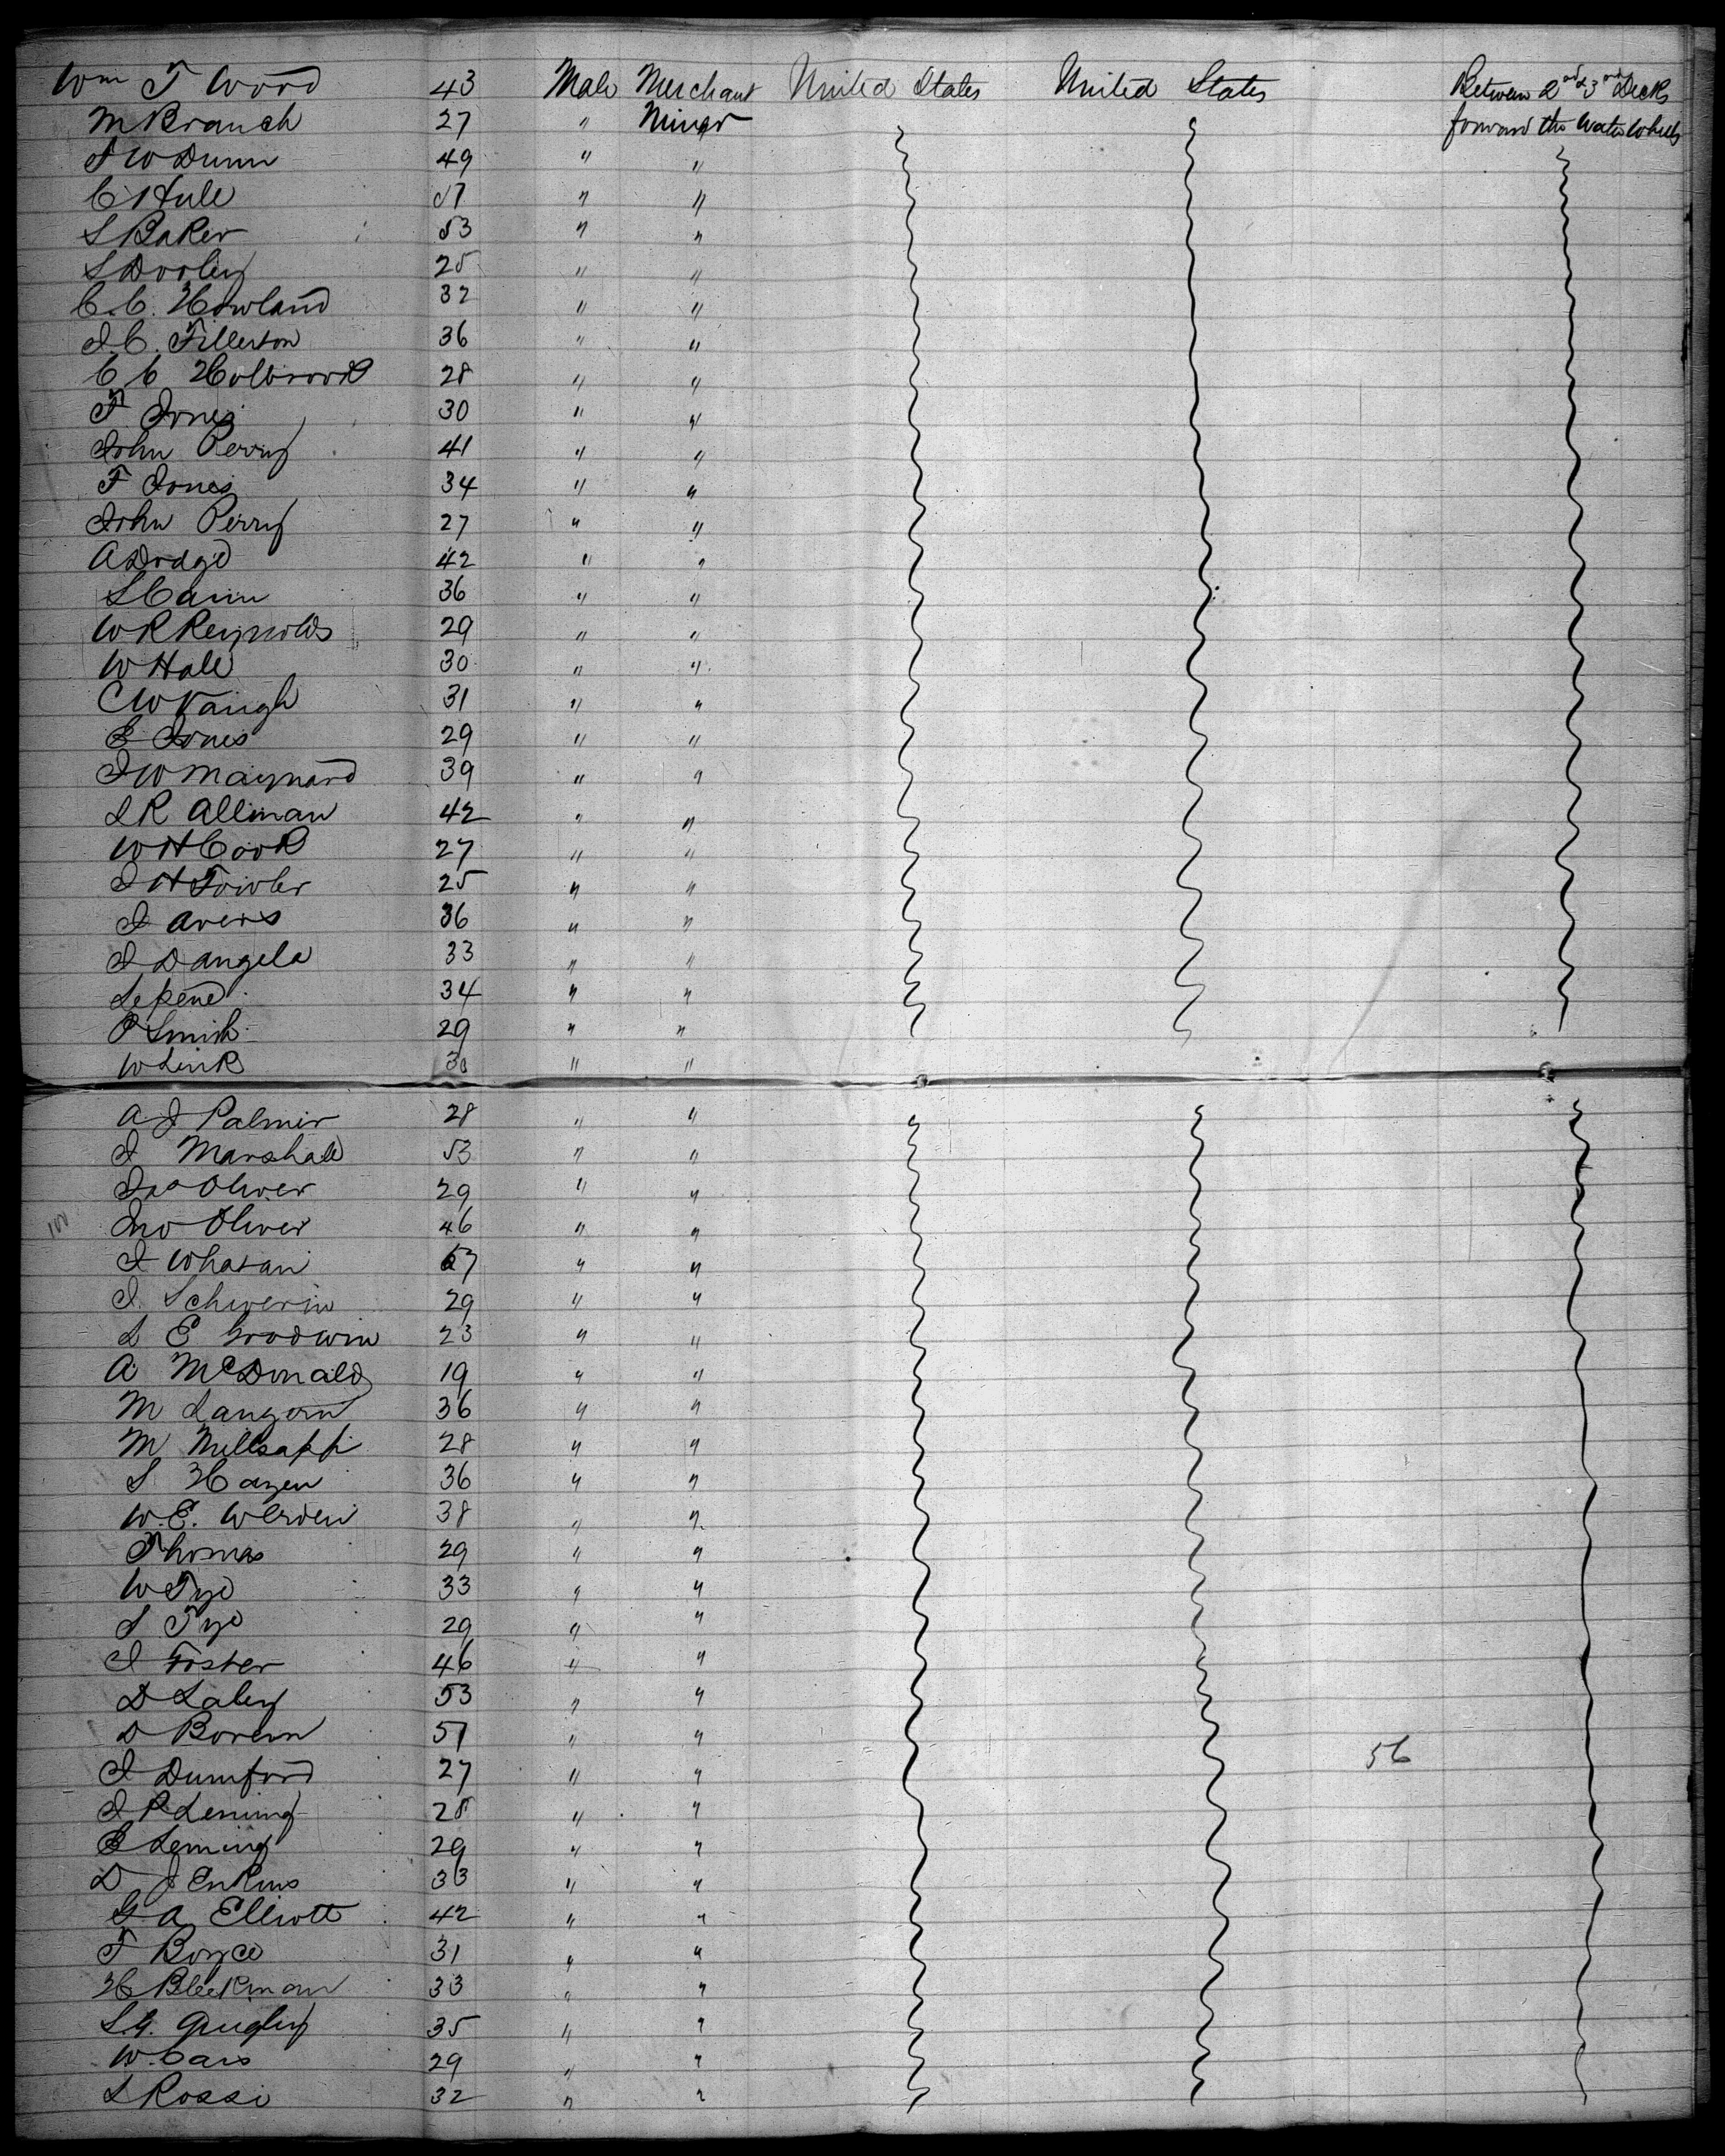 Wm T Wood 43 Male Merchant United States United States Between 2nd & 3rd Decks
M Branch 27 " Miner forward the Water Wheels
J W Dunn 49 " "
C Hull 57 " "
S Baker 53 " "
S Dooley 25 " "
C. C. Howland 32 " "
J. C. Tillerson 36 " "
C C Holbrook 28 " "
T Jones 30 " "
John Perry 41 " "
F Jones 34 " "
John Perry 27 " "
A Dodge 42 " "
S Cann 36 " "
W R Reynolds 29 " "
W Hall 30 " "
C W Vaugh 31 " "
E Jones 29 " "
J W Maynard 39 " "
L R Allman 42 " "
W H Cook 27 " "
J H Fowler 25 " "
J Avers 36 " "
J D Angele 33 " "
Lepene 34 " "
P Smith 29 " "
W Link 30 " "
A J Palmer 28 " "
J Marshall 53 " "
Jas Oliver 29 " "
100 Jno Oliver 46 " "
J 67 " "
J. Schwerin 29 " "
L E Goodwin 23 " "
A McDonald 19 " "
M Langorn 36 " "
M Millsapp 28 " "
S Hazen 36 " "
W. E. Werden 38 " "
Thomas 29 " "
W Tye 33 " "
S Tye 29 " "
J Foster 46 " "
D Laley 53 " "
D Borern 57 " "
J Dumford 27 " " 56
J P Leming 28 " "
E Leming 29 " "
D Jenkins 33 " "
G A Elliott 42 " "
T Boyce 31 " "
H Bleekman 33 " "
S. G. Quigley 35 " "
W. Cars 29 " "
L Rossi 32 " "